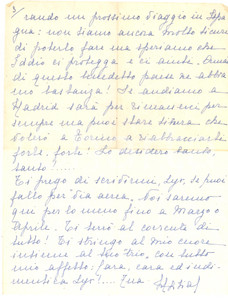 3/
rando un prossimo viaggio in Spa
gna: non siamo ancora molto sicuri
di poterlo fare ma speriamo che
Iddio ci protegga e ci aiuti. Ormai
di questo benedetto paese ne abbia
mo bastanza! Se andiamo a
Madrid sarà per rimanerci per
sempre ma puoi stare sicura che
volerò a Torino a riabbracciarte
forte, forte! Lo desidero tanto,
tanto!.....
Ti prego di scrivermi, se puoi
fallo per via aerea. Noi saremo
qui per lo meno fino a Marzo o
Aprile. Ti terrò al corrente di
tutto! Ti stringo al mio cuore
insieme al tuo Trio, con tutto
mio affetto: cara, cara ed indi-
mentica Tua